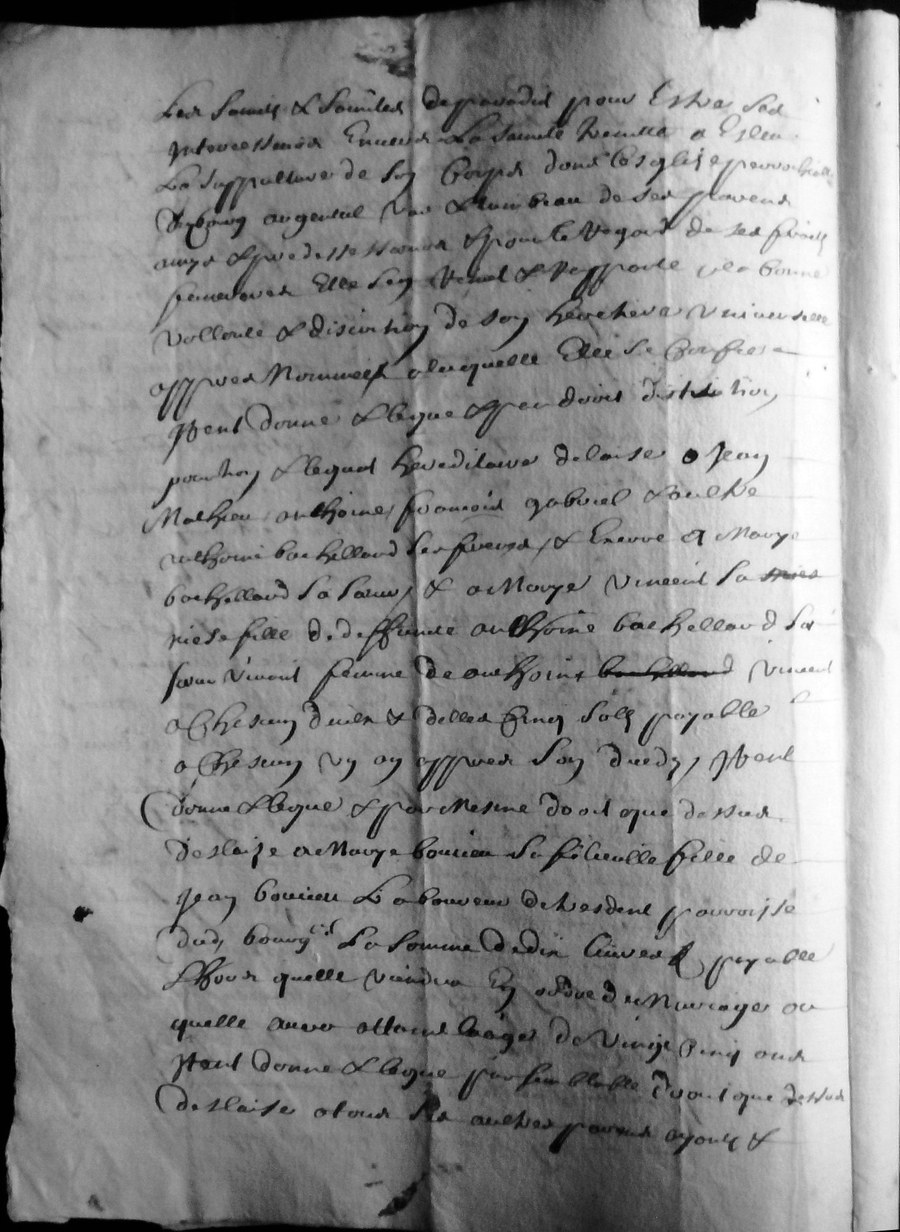 Les Saincts & Sainctes de paradis pour Estre ses
Intercesseurs Envers La Sainte a Esleu
La seppulture de son Corps dans leglize parrochialle
du bourg argental vas & tumbeau de ses parents
amys & predessesseurs & pour le regard de ses frais
funeraires Elle sen Remet & Rapporte a la bonne
vollonté & discretion de son herettiere universelle
appres Nommée a laquelle Elle se Confie
Item donne & legue & par droit distitution
portion & legat hereditaire delaise a Jean
Mathieu anthoine francois gabriel & aultre
anthoine bachelland ses freres, & Encore a Marye
bachelland sa sœur, & a Marye vincent sa
niese fille de deffuncte anthoine bachelland sa
sœur vivant femme de anthoine bachelland vincent
a Chescun diceux & dicelles Cinq solz payable
a Chescun un an appres son deceds, Item
donne & legue & par mesme droit que dessus
deslaise a Marye bonieu sa filieulle fille de
Jean bonieu Laboureur de parroisse
dud bourg La somme de dix livres payable
Lhors quelle viendra En ordre de Mariage ou
quelle aura attaint leage de vingt Cinq ans
Item donne & legue par semblable droit que dessus
deslaise a tous ses aultres parents ayants &